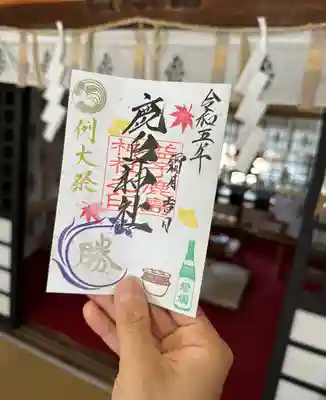 令和五年
霜月吉日
鹿島神社
例大祭
勝